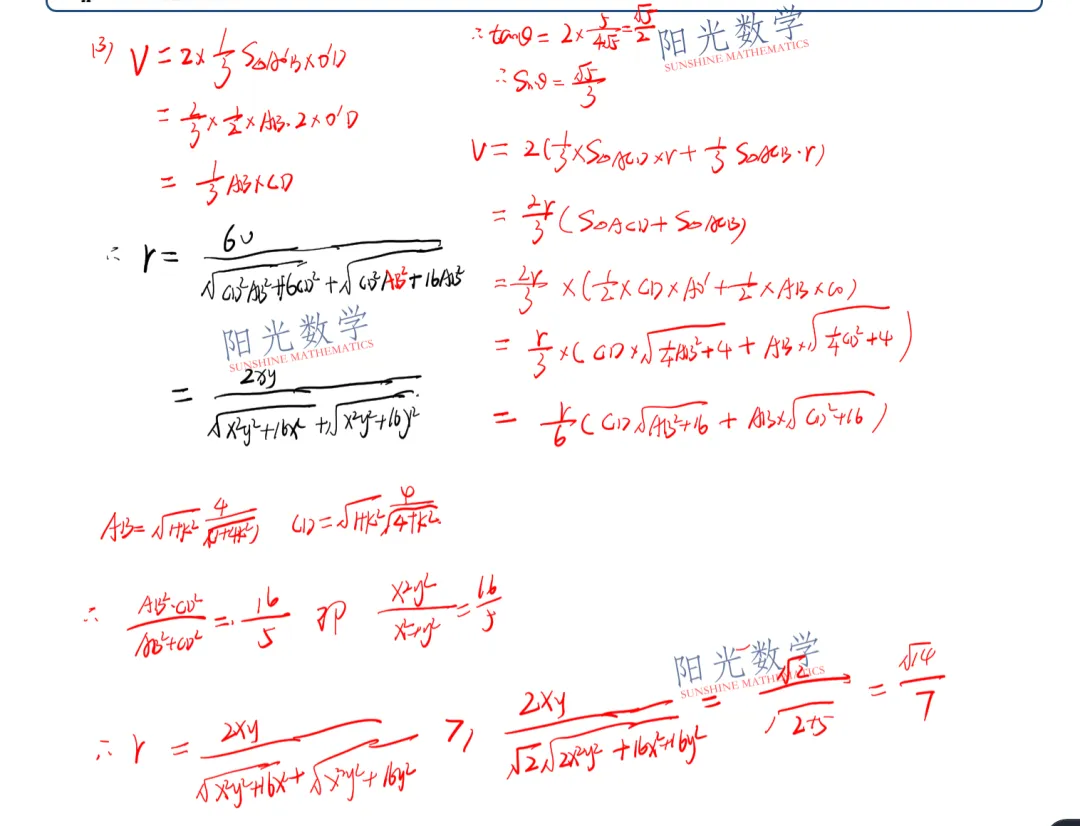 (3) V = 2×1/3 S△A'B×O'D
= 2/3×1/2×AB·2×O'D
= 1/3 AB×CD
∴ r = 6V/(√(CD²AB²+16CD²)+√(CD²AB²+16AB²))
阳光数学
SUNSHINE MATHEMATICS
= 2xy/(√(x²y²+16x²)+√(x²y²+16y²))
∴ tanθ = 2×5/(4√5) = √5/2
阳光数学
SUNSHINE MATHEMATICS
∴ Sinθ = √5/3
V = 2(1/3×S△ACD×r+1/3 S△ACB·r)
= 2r/3 (S△ACD+S△ACB)
= 2r/3 ×(1/2×CD×AO'+1/2×AB×CO)
= r/3 ×(CD×√(1/4AB²+4)+AB×√(1/4CD²+4))
= r/6 (CD√(AB²+16)+AB×√(CD²+16))
AB=√(1+k²) 4/√(1+4k²) CD=√(1+k²) 4/√(4+k²)
∴ AB²·CD²/(AB²+CD²) = 16/5 即 x²y²/(x²+y²) = 16/5
阳光数学
SUNSHINE MATHEMATICS
∴ r = 2xy/(√(x²y²+16x²)+√(x²y²+16y²)) ≥ 2xy/(√2√(2x²y²+16x²+16y²)) = √2/√(2+5) = √14/7